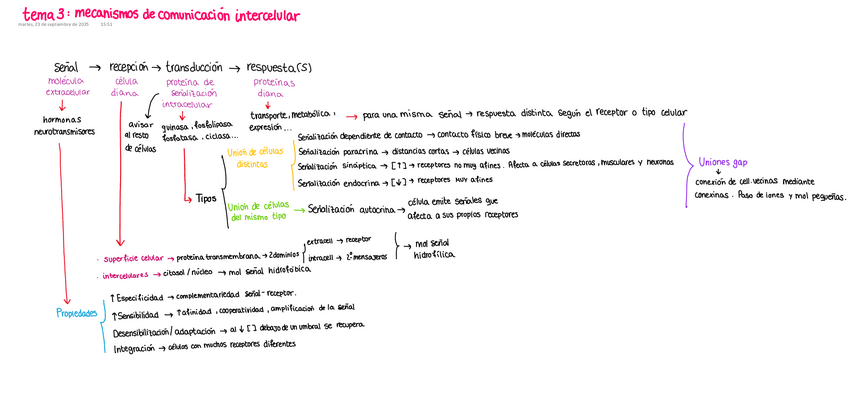 tema 3: mecanismos de comunicación intercelular
martes, 23 de septiembre de 2025 15:51
señal → recepción → transducción → respuesta(s)
molécula extracelular
célula diana
proteína de señalización intracelular
proteínas diana
hormonas
neurotransmisores
avisar al resto de células
quinasa, fosfolipasa
fosfatasa, ciclasa...
transporte, metabólica,
expresión...
→ para una misma señal → respuesta distinta según el receptor o tipo celular
Tipos
Unión de células distintas
Señalización dependiente de contacto → contacto físico breve → moléculas directas
Señalización paracrina → distancias cortas → células vecinas
Señalización sináptica → [↑] → receptores no muy afines. Afecta a células secretoras, musculares y neuronas
Señalización endocrina → [↓] → receptores muy afines
Unión de células del mismo tipo
→ Señalización autocrina → célula emite señales que
afecta a sus propios receptores
Uniones gap
conexión de cell. vecinas mediante
conexinas. Paso de iones y mol pequeñas.
· superficie celular → proteína transmembrana → 2 dominios
extracell → receptor
intracell → 2º mensajeros
→ mol señal
hidrofílica
· intercelulares → citosol/núcleo → mol señal hidrofóbica
Propiedades
↑ Especificidad → complementariedad señal-receptor.
↑ Sensibilidad → ↑ afinidad, cooperatividad, amplificación de la señal
Desensibilización/adaptación → al ↓ [ ] debajo de un umbral se recupera
Integración → células con muchos receptores diferentes